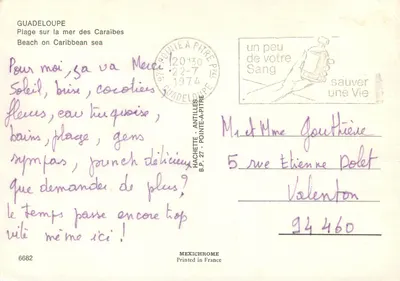 GUADELOUPE
Plage sur la mer des Caraïbes
Beach on Caribbean sea
Pour moi, ça va Merci!
Soleil, brise, cocotiers
fleurs, eau turquoise,
bains, plage, gens
sympas, punch délicieux
que demander de plus?
le temps passe encore trop
vite même ici!
6682
POINTE A PITRE PPAL
20H30
22-7
1974
GUADELOUPE
un peu
de votre
Sang
sauver
une Vie
HACHETTE - ANTILLES
B.P. 27 - POINTE-A-PITRE
M. et Mme Gouthière
5 rue Etienne Dolet
Valenton
94460
MEXICHROME
Printed in France